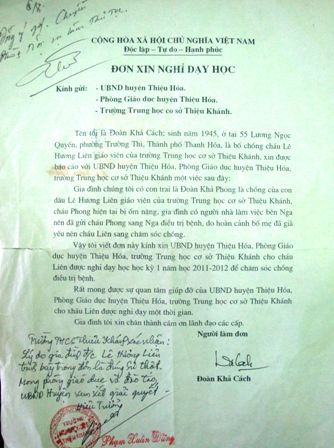 Đồng ý gd. Chuyển
CỘNG HÒA XÃ HỘI CHỦ NGHĨA VIỆT NAM
Độc lập – Tự do – Hạnh phúc
ĐƠN XIN NGHỈ DẠY HỌC
Kính gửi: - UBND huyện Thiệu Hóa.
- Phòng Giáo dục huyện Thiệu Hóa.
- Trường Trung học cơ sở Thiệu Khánh.
Tên tôi là Đoàn Khá Cách; sinh năm 1945, ở tại 55 Lương Ngọc
Quyến, phường Trường Thi, Thành phố Thanh Hóa, là bố chồng cháu Lê
Hương Liên giáo viên của trường Trung học cơ sở Thiệu Khánh, xin được
báo cáo với UBND huyện Thiệu Hóa, Phòng Giáo dục huyện Thiệu Hóa,
trường Trung học cơ sở Thiệu Khánh một việc sau đây:
Gia đình chúng tôi có con trai là Đoàn Khá Phong là chồng của con
dâu Lê Hương Liên giáo viên của trường Trung học cơ sở Thiệu Khánh,
cháu Phong hiện tại bị ốm nặng, gia đình có người nhà làm việc bên Nga
nên đã gửi cháu Phong sang Nga điều trị bệnh, do hoàn cảnh bố mẹ đã già
yếu nên cháu Liên sang chăm sóc chồng.
Vậy tôi viết đơn này kính xin UBND huyện Thiệu Hóa, Phòng Giáo
dục huyện Thiệu Hóa, trường Trung học cơ sở Thiệu Khánh cho cháu
Liên được nghỉ dạy học học kỳ 1 năm học 2011-2012 để chăm sóc chồng
điều trị bệnh.
Rất mong được sự quan tâm giúp đỡ của UBND huyện Thiệu Hóa,
Phòng Giáo dục huyện Thiệu Hóa, trường Trung học cơ sở Thiệu Khánh
cho xháu Liên được nghỉ dạy một thời gian.
Gia đình tôi xin chân thành cảm ơn lãnh đạo các cấp.
Người làm đơn
Đoàn Khá Cách
Trường THCS Thiệu Khánh xác nhận:
Lý do gia đình đ/c Lê Hương Liên
trình bày trong đơn là đúng sự thật.
Mong phòng giáo dục và đào tạo,
UBND Huyện xem xét giải quyết.
Hiệu trưởng
Phạm Xuân Dũng